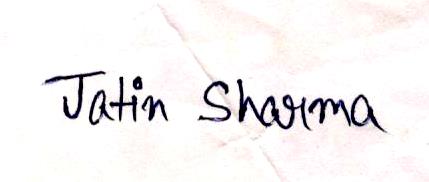 Jatin Sharma